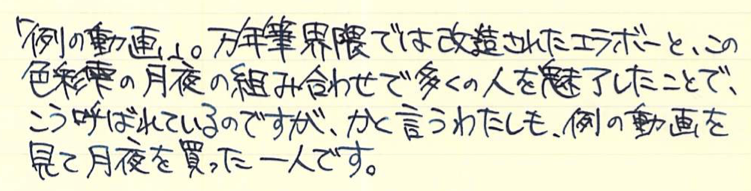 「例の動画」。万年筆界隈では改造されたエラボーと、この
色彩雫の月夜の組み合わせで多くの人を魅了したことで、
こう呼ばれているのですが、かく言うわたしも、例の動画を
見て月夜を買った一人です。